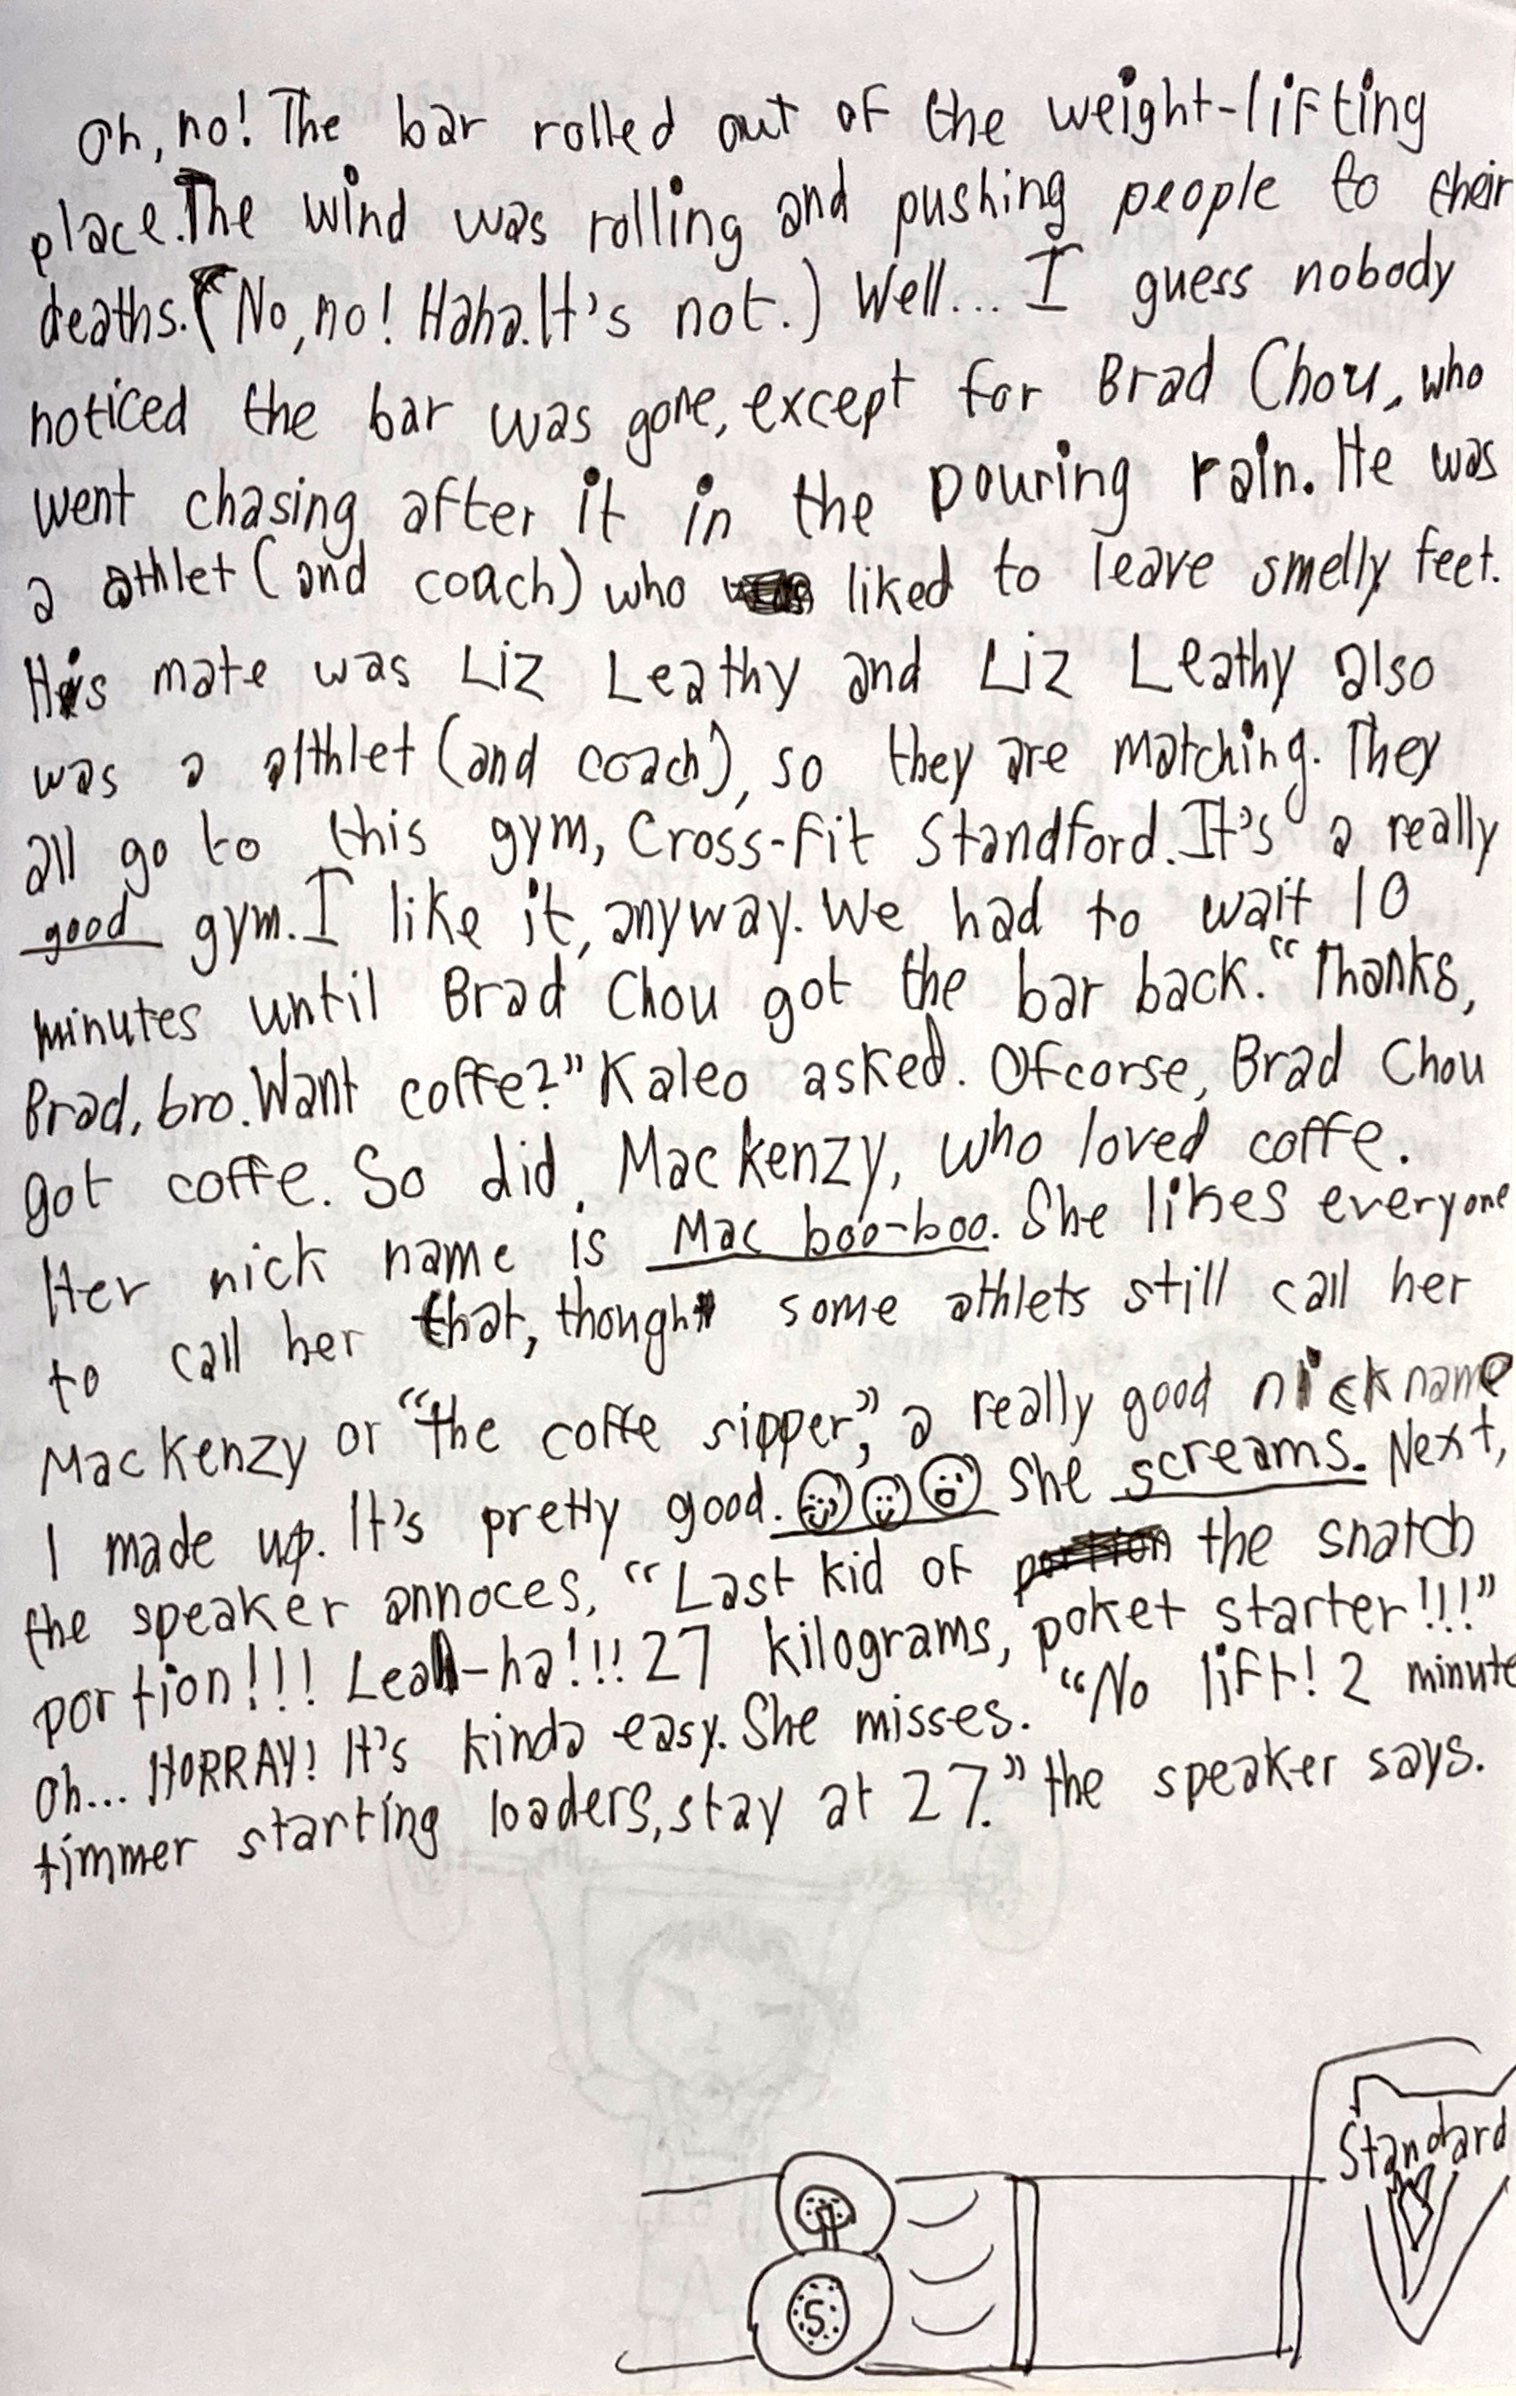 Oh, no! The bar rolled out of the weight-lifting
place. The wind was rolling and pushing people to their
deaths. (No, no! Haha. It's not.) Well... I guess nobody
noticed the bar was gone, except for Brad Chou, who
went chasing after it in the pouring rain. He was
a athlet (and coach) who liked to leave smelly feet.
His mate was Liz Leathy and Liz Leathy also
was a althlet (and coach), so they are matching. They
all go to this gym, Cross-Fit Standford. It's a really
good gym. I like it, anyway. We had to wait 10
minutes until Brad Chou got the bar back. "Thanks,
Brad, bro. Want coffe?" Kaleo asked. Ofcorse, Brad Chou
got coffe. So did, Mackenzy, who loved coffe.
Her nick name is Mac boo-boo. She likes everyone
to call her that, though some athlets still call her
Mackenzy or "the coffe sipper," a really good nickname
I made up. It's pretty good. She screams. Next,
the speaker annoces, "Last kid of the snatch
portion!!! Leah-ha!!! 27 kilograms, poket starter!!!"
Oh... HORRAY! It's kinda easy. She misses. "No lift! 2 minute
timmer starting loaders, stay at 27." the speaker says.
Standard
S